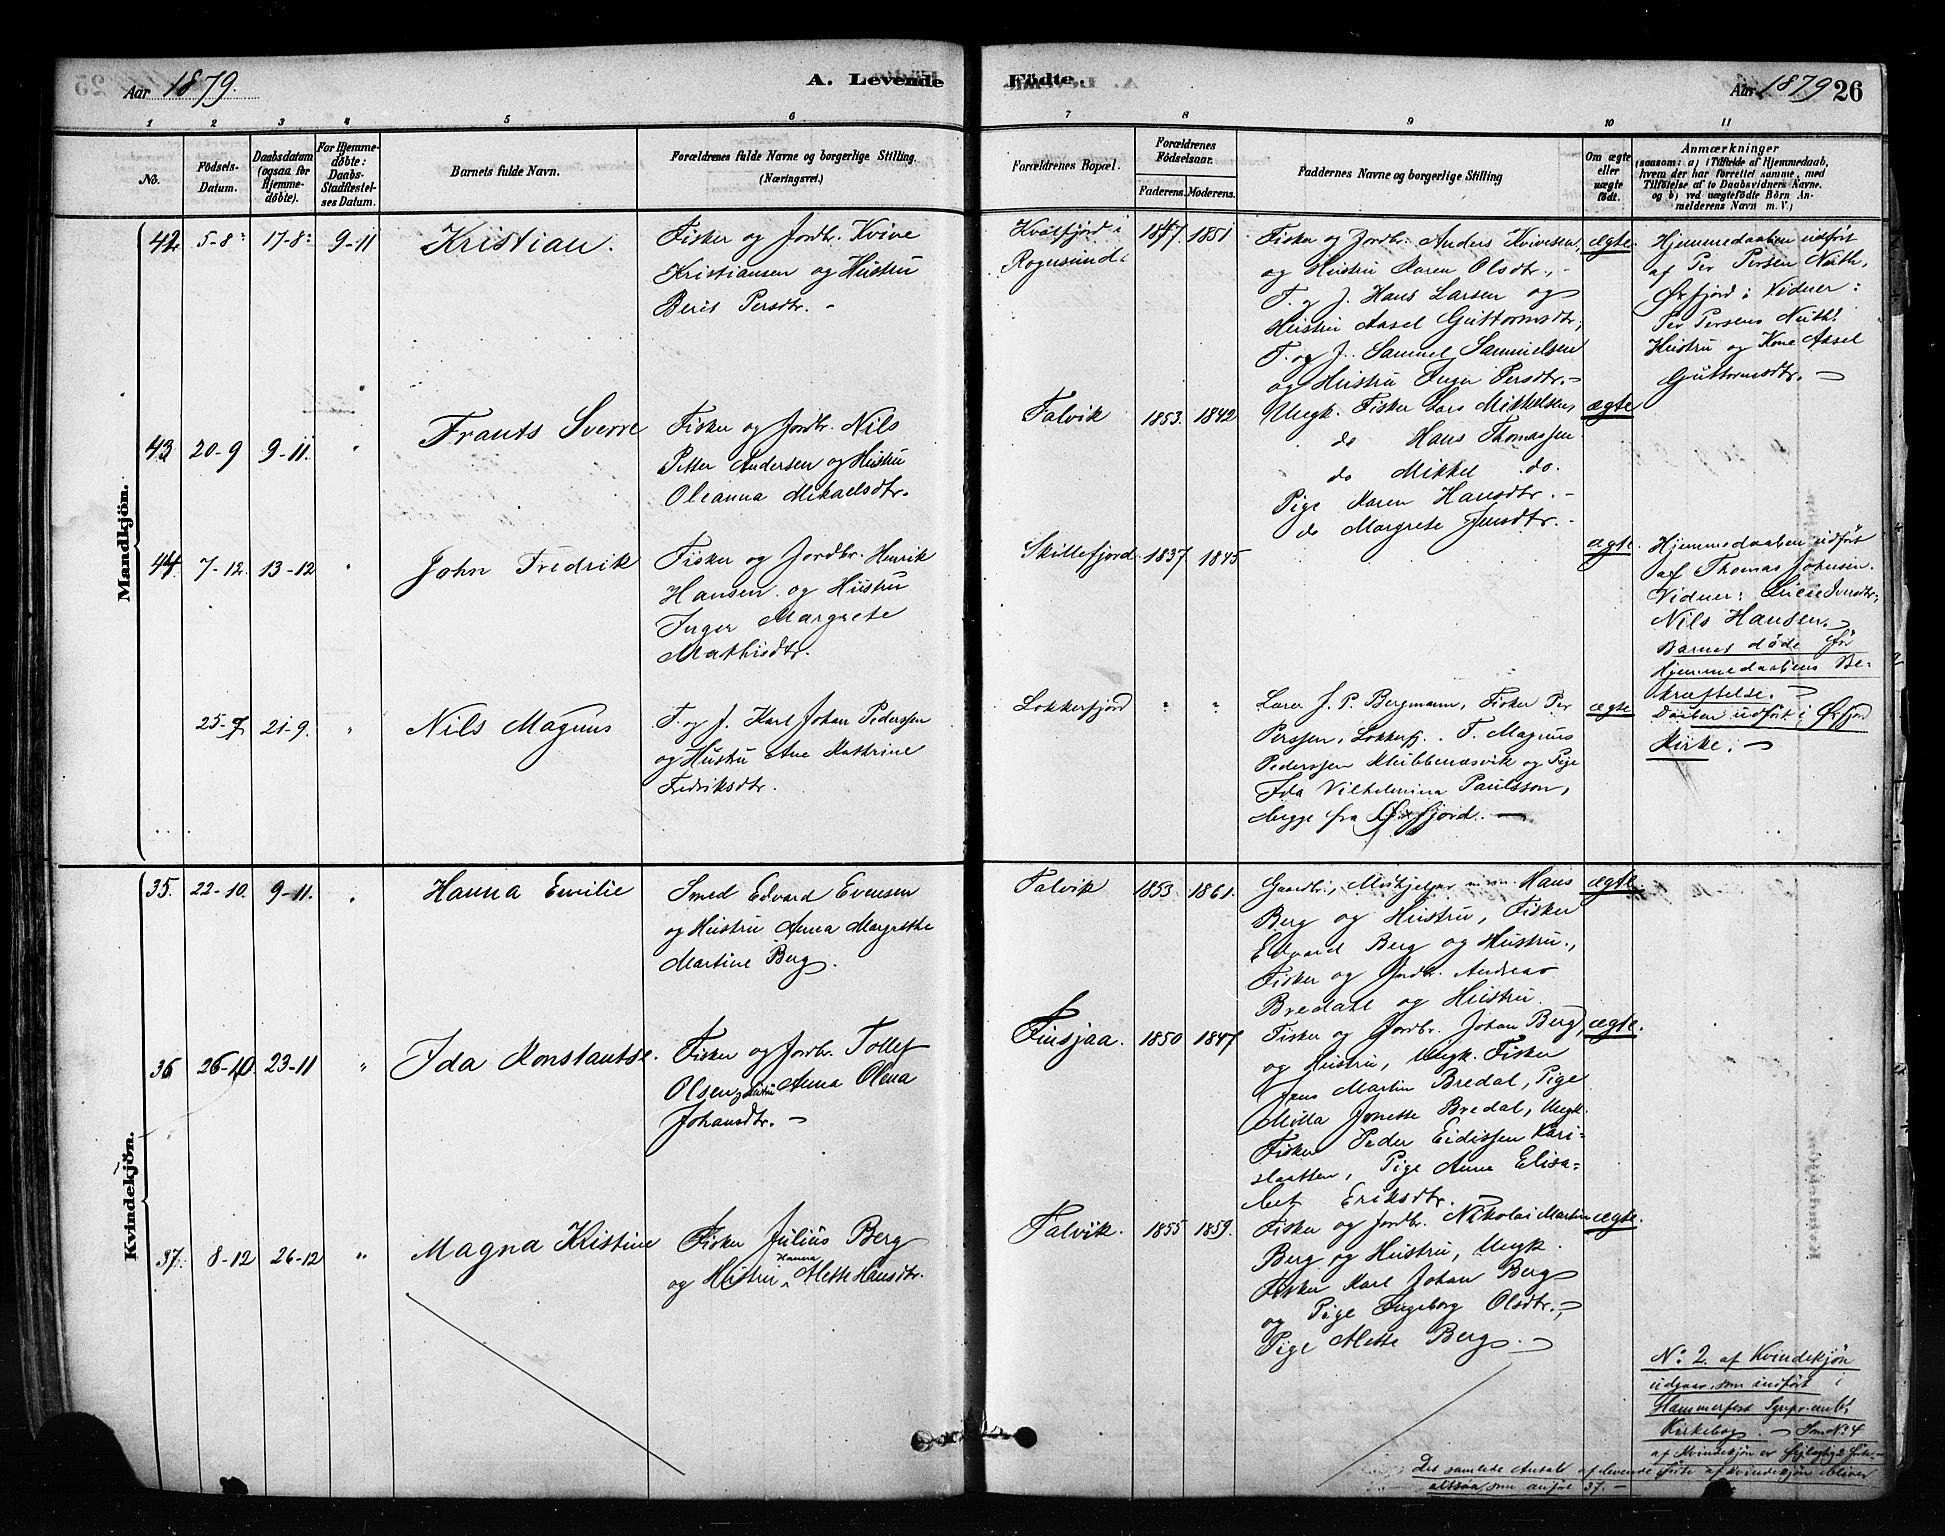 Aar 1879. A. Levende
Födte. Aar 1879 26
1 2 3 4 5 6 7 8 9 10 11
No.
Födsels-Datum.
Daabsdatum (ogsaa for Hjemme-döbte).
For Hjemme-döbte: Daabs-Stadfæstel-ses Datum.
Barnets fulde Navn.
Forældrenes fulde Navne og borgerlige Stilling. (Næringsvei.)
Forældrenes Bopæl.
Forældrenes Födselsaar.
Faderens. Moderens.
Faddernes Navne og borgerlige Stilling
Om ægte eller uægte födt.
Anmærkninger
(saasom: a) i Tilfælde af Hjemmedaab,
hvem der har forrettet samme, med
Tilföielse af to Daabsvidners Navne.
og b) ved uægtefödte Börn An-
melderens Navn m. V.)
Mandkjön.
42. 5-8 17-8 9-11 Kristian.
Fisker og Jordbr. Kvive
Kristiansen og Hustru
Berit Persdtr. -
Kvalfjord i
Rognsund
1847 1851
Fisker og Jordbr. Anders Kvivesen
og Hustru Karen Olsdtr., -
F. og J. Hans Larsen og
Hustru Aasel Guttormsdtr,
F. og J. Samuel Samuelsen
og Hustru Inger Persdtr. -
ægte
Hjemmedaaben udført
af Per Persen Nuth,
Øxfjord; Vidner:
Per Persens Nuth
Hustru og Kone Aasel
Guttormsdtr. -
43 20-9 9-11. " Frants Sverre
Fisker og Jordbr. Nils
Petter Andersen og Hustru
Oleanna Mikaelsdtr.
Talvik 1853. 1842
Ungk. Fisker Lars Mikkelsen,
do Hans Thomassen
do Mikkel do.
Pige Karen Hansdtr. -
do Margrete Jensdtr. -
ægte
44. 7-12. 13-12 " John Fredrik
Fisker og Jordbr. Henrik
Hansen og Hustru
Inger Margrete
Mathisdtr.
Skillefjord. 1837 1845
ægte.
Hjemmedaaben udført
af Thomas Johnsen.
Vidner: Lucie Iversdtr,
Nils Hansen. -
Barnet døde før
Hjemmedaabens Be-
kræftelse. -
25-7 21-9. " Nils Magnus
F. og J. Karl Johan Pederssen
og Hustru Ane Kathrine
Fredriksdtr.
Lokkerfjord " "
Lærer J. P. Bergmann, Fisker Per
Perssen, Lokkerfj. F. Magnus
Pederssen Klubbenæsvik og Pige
Ida Vilhelmina Paulsson,
begge fra Øxfjord. -
ægte
Daaben udført i Øxfjord
Kirke. -
Kvindekjön.
35. 22-10. 9-11. " Hanna Emilie
Smed Edvard Evensen
og Hustru Anna Margrethe
Martine Berg.
Talvik 1853. 1861.
Gaardbr. Hans
Berg og Hustru, Fisker
Edvard Berg og Hustru,
Fisker og Jordbr. Andreas
Bredahl og Hustru.
ægte.
36 26-10. 23-11 " Ida Konstantse.
Fisker og Jordbr. Tollef
Olsen og Hustru Anna Olena
Johansdtr. -
Fursjaa. 1850 1847
Fisker og Jordbr. Johan Berg
og Hustru, Ungk. Fisker
Jens Martin Bredal, Pige
Milla Jonette Bredal, Ungk.
Fisker Peder Eidissen Kari-
slaatten, Pige Anne Elisa-
bet Eriksdtr.
ægte.
37. 8-12 26-12 " Magna Kristine
Fisker Julius Berg
og Hustru Hanna Mette Hansdtr.
Talvik. 1855 1859.
Fisker og Jordbr. Nikolai Martin
Berg og Hustru, Ungk.
Fisker Karl Johan Berg
og Pige Ingeborg Olsdtr., -
Pige Mette Berg. -
ægte.
No 2. af Kvindekjøn
udgaar, som indført i
Hammerfest
Kirkebog. - Som No 4
af Kvindekjøn er
Det samlede Antal af levende fødte af Kvindekjøn bliver
altsaa, som anført 37. -